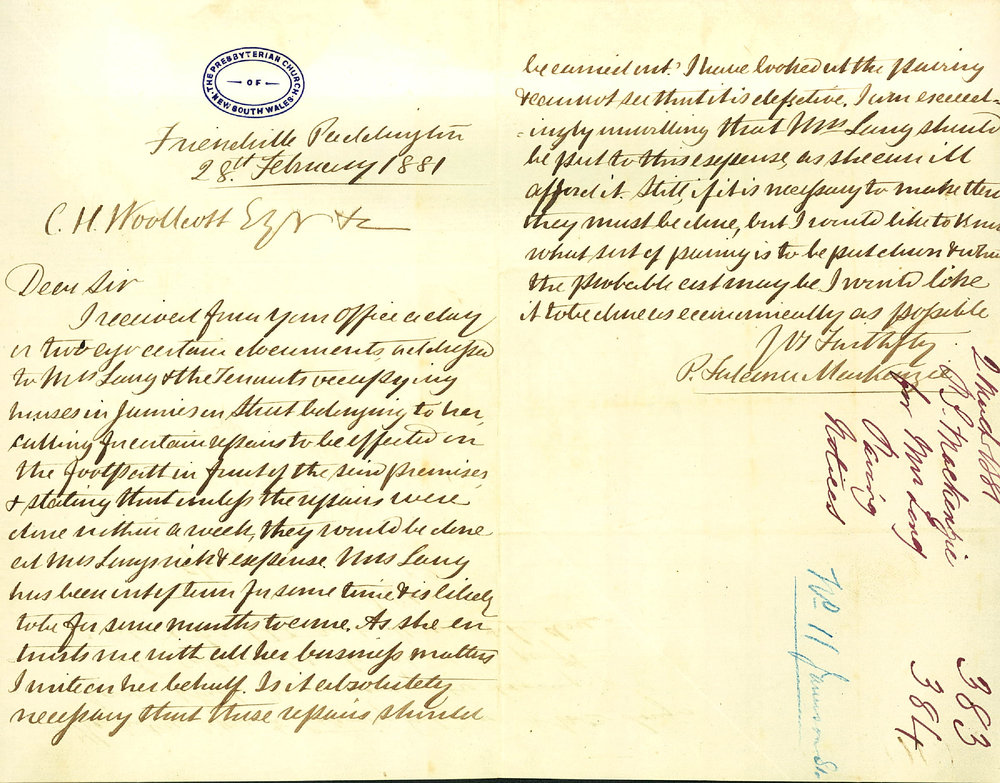 THE PRESBYTERIAN CHURCH
OF
NEW SOUTH WALES
Friendville Paddington
28th. February 1881
C. H. Woollcott Esqr &c
Dear Sir
I received from your Office a day
or two ago certain documents addressed
to Mrs Lang & the Tenants occupying
houses in Jamieson Street belonging to her,
calling for certain repairs to be effected on
the footpath in front of the said premises
& stating that unless the repairs were
done within a week, they would be done
at Mrs Langs risk & expense Mrs Lang
has been out of town for some time & is likely
to be for some months to come. As she en
trusts me with all her business matters
I write on her behalf. Is it absolutely
necessary that these repairs should
be carried out? I have looked at the paving
& cannot see that it is defective. I am exceed-
-ingly unwilling that Mrs Lang should
be put to this expense, as she can ill
afford it. Still, if it is necessary to make them
they must be done, but I would like to know
what sort of paving is to be put down & what
the probable cost may be I would like
it to be done as economically as possible
Yrs Faithfly
P. Falconer Mackenzie
2 Mar 1881
P. F. Mackenzie
for Mrs Lang
Paving
Notices
No 11 Jamieson St
383
384